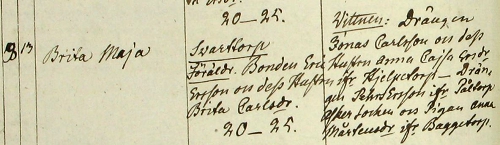 20–25.
Vittnen: Drängen
8 13
Brita Maja
Svarttorp
Jonas Carlsson och dess
Föräldr. Bonden Eric
Hustru Anna Cajsa
Ersson och dess Hustru
ifr Hjelpetorp – Drän-
Brita Carlsdr.
gen Pehr Ersson ifr
socken och Pigan Anna
20–25.
Mårtensdr ifr Baggetorp.